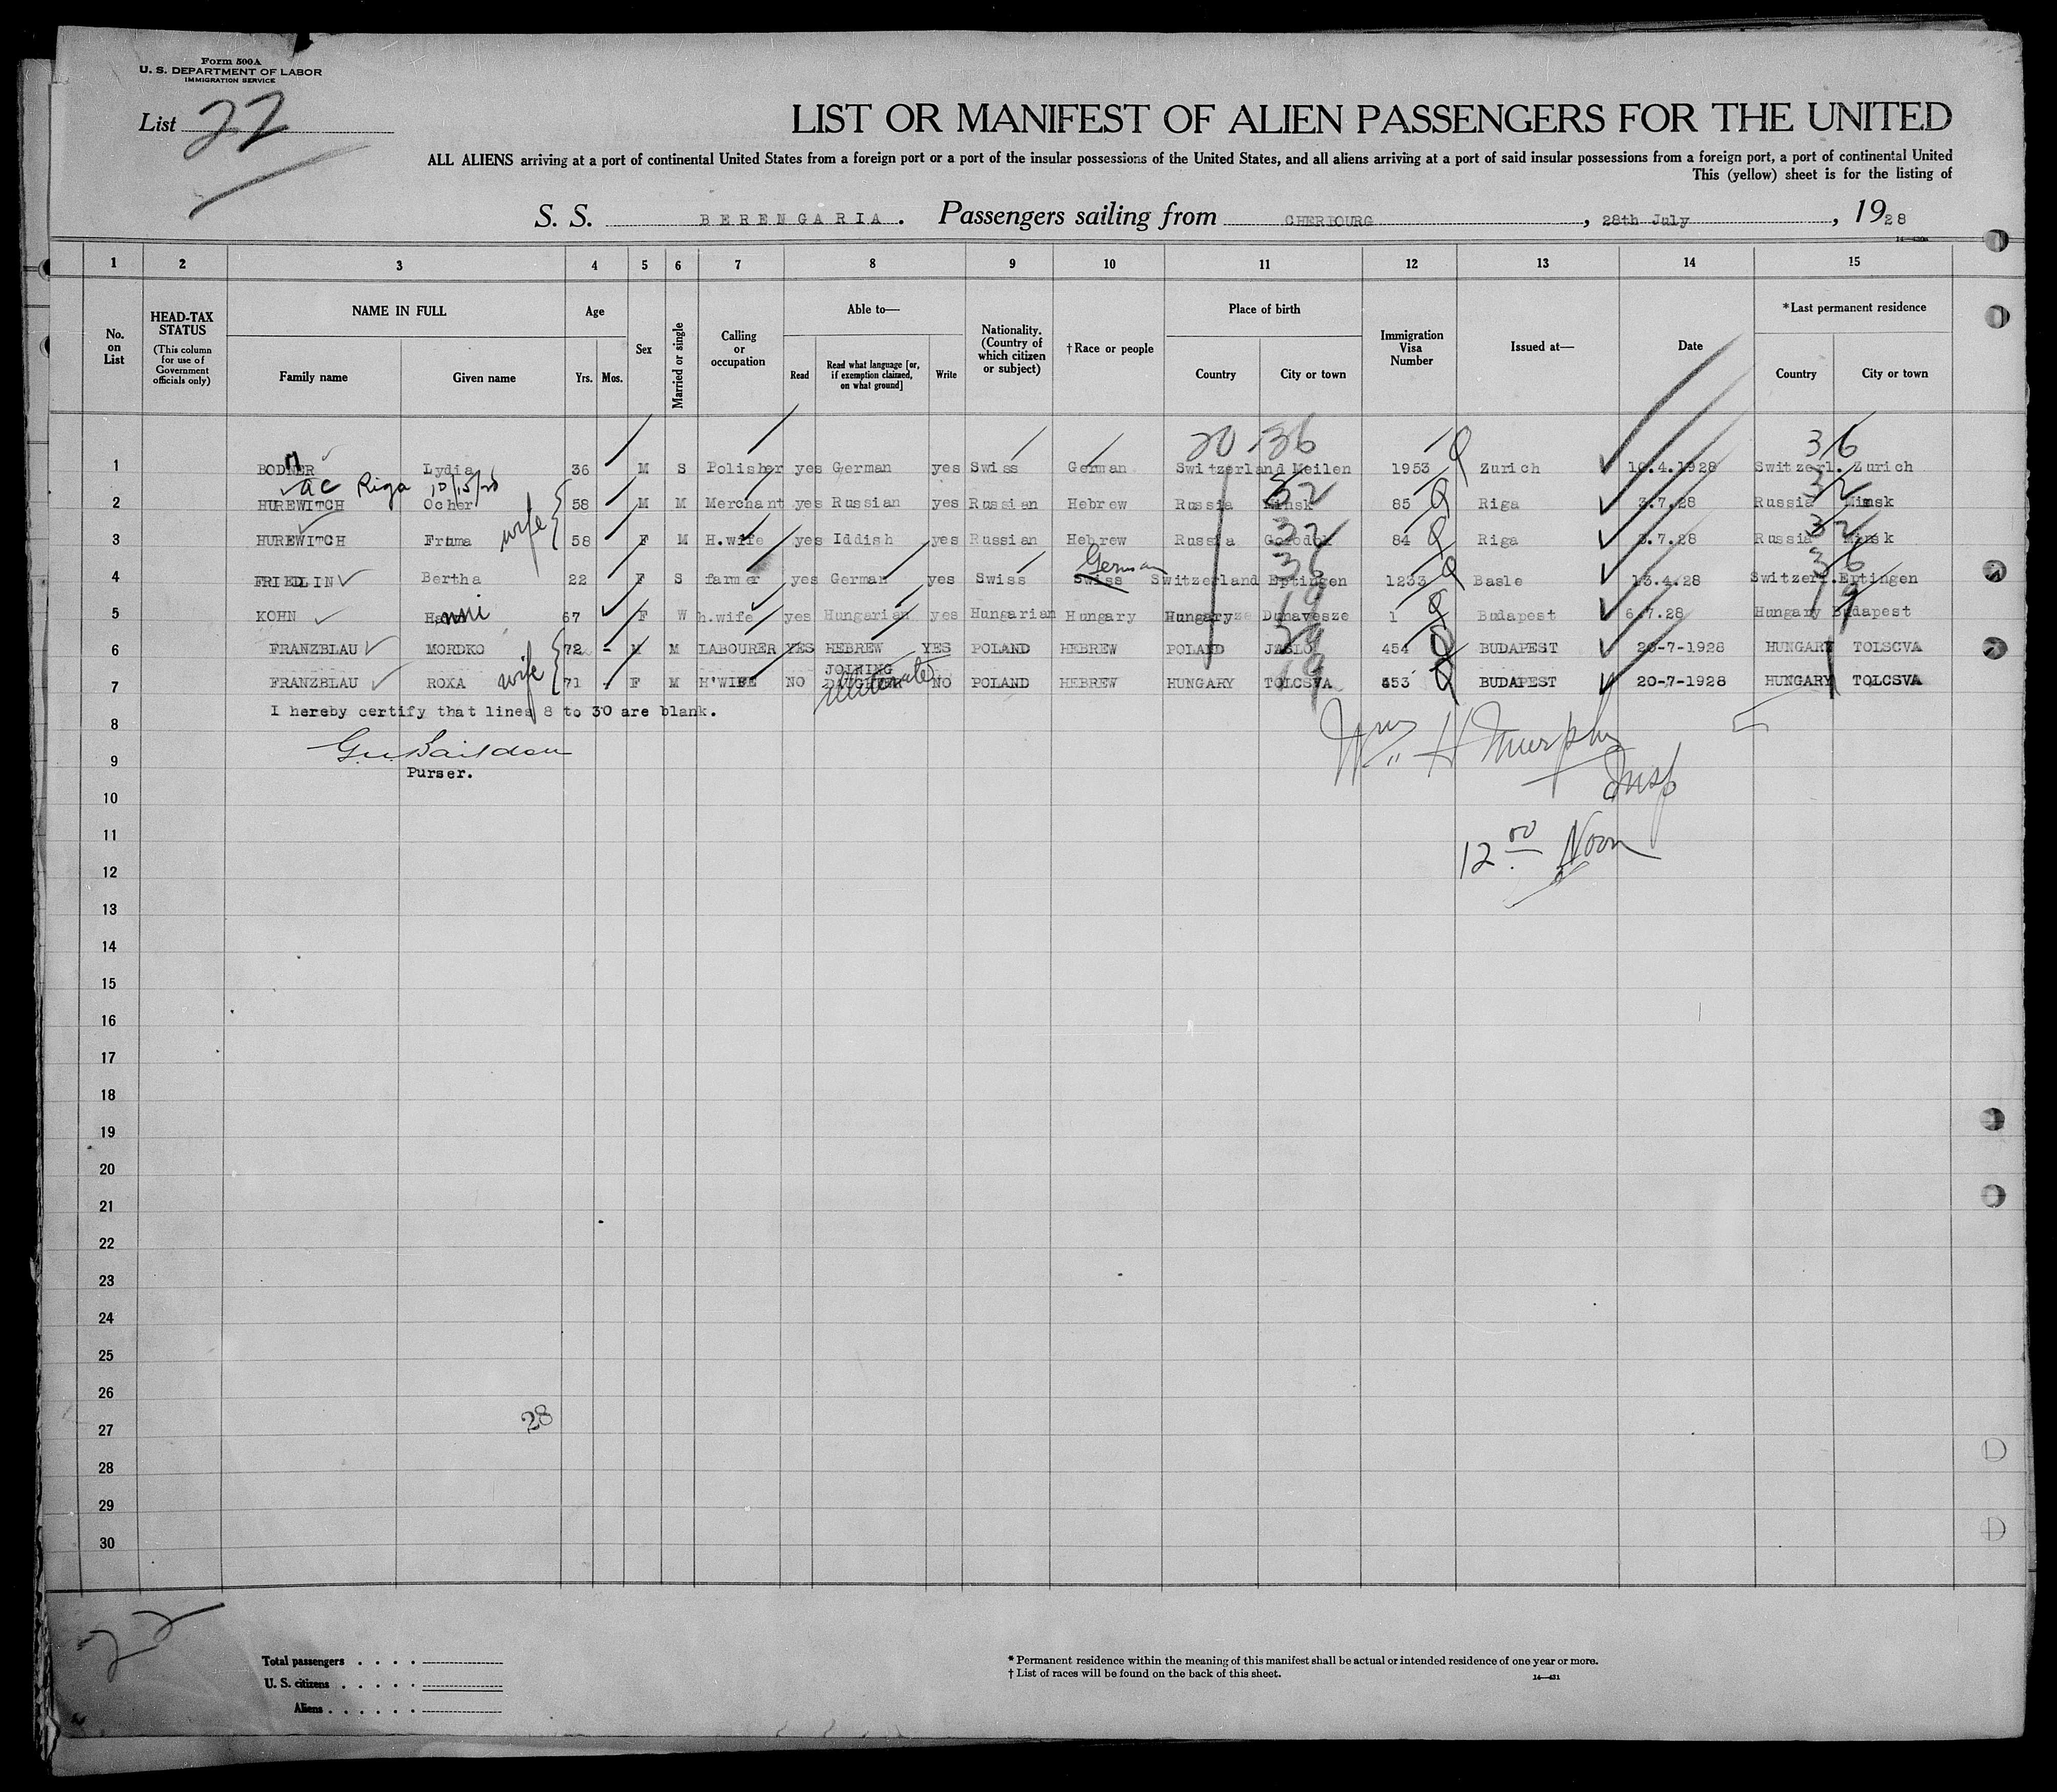 Form 500A
U. S. DEPARTMENT OF LABOR
IMMIGRATION SERVICE
List 22
LIST OR MANIFEST OF ALIEN PASSENGERS FOR THE UNITED
ALL ALIENS arriving at a port of continental United States from a foreign port or a port of the insular possessions of the United States, and all aliens arriving at a port of said insular possessions from a foreign port, a port of continental United
This (yellow) sheet is for the listing of
S. S. BERENGARIA. Passengers sailing from CHERBOURG, 28th July, 1928
1 2 3 4 5 6 7 8 9 10 11 12 13 14 15
No. on List
HEAD-TAX STATUS (This column for use of Government officials only)
NAME IN FULL Family name Given name
Age Yrs. Mos.
Sex
Married or single
Calling or occupation
Able to— Read Read what language [or, if exemption claimed, on what ground] Write
Nationality. (Country of which citizen or subject)
†Race or people
Place of birth Country City or town
Immigration Visa Number
Issued at—
Date
*Last permanent residence Country City or town
20 36 36
1 BODNER Lydia 36 M S Polisher yes German yes Swiss German Switzerland Meilen 1953 Zurich 10.4.1928 Switzerl. Zurich
ac Riga 10/15/28 32 32
2 HUREWITCH Ocher 58 M M Merchant yes Russian yes Russian Hebrew Russia Minsk 85 Riga 3.7.28 Russia Minsk
wife 32 32
3 HUREWITCH Fruma 58 F M H.wife yes Iddish yes Russian Hebrew Russia Gorodok 84 Riga 3.7.28 Russia Minsk
German 36 36
4 FRIEDLIN Bertha 22 F S farmer yes German yes Swiss Swiss Switzerland Eptingen 1233 Basle 13.4.28 Switzerl. Eptingen
19 19
5 KOHN Hanni 67 F W h.wife yes Hungarian yes Hungarian Hungary Hungary Dunavesze 1 Budapest 6.7.28 Hungary Budapest
6 FRANZBLAU MORDKO 72 - M M LABOURER YES HEBREW YES POLAND HEBREW POLAND JASLO 454 BUDAPEST 20-7-1928 HUNGARY TOLSCVA
wife JOINING 19
7 FRANZBLAU ROXA 71 - F M H'WIFE NO DAUGHTER illiterate NO POLAND HEBREW HUNGARY TOLCSVA 453 BUDAPEST 20-7-1928 HUNGARY TOLCSVA
I hereby certify that lines 8 to 30 are blank.
8
Wm H Murphy
9
Purser.
Insp
10
11
12 00 Noon
12
13
14
15
16
17
18
19
20
21
22
23
24
25
26
28
27
28
29
30
22
Total passengers
U. S. citizens
Aliens
* Permanent residence within the meaning of this manifest shall be actual or intended residence of one year or more.
† List of races will be found on the back of this sheet.
14—431